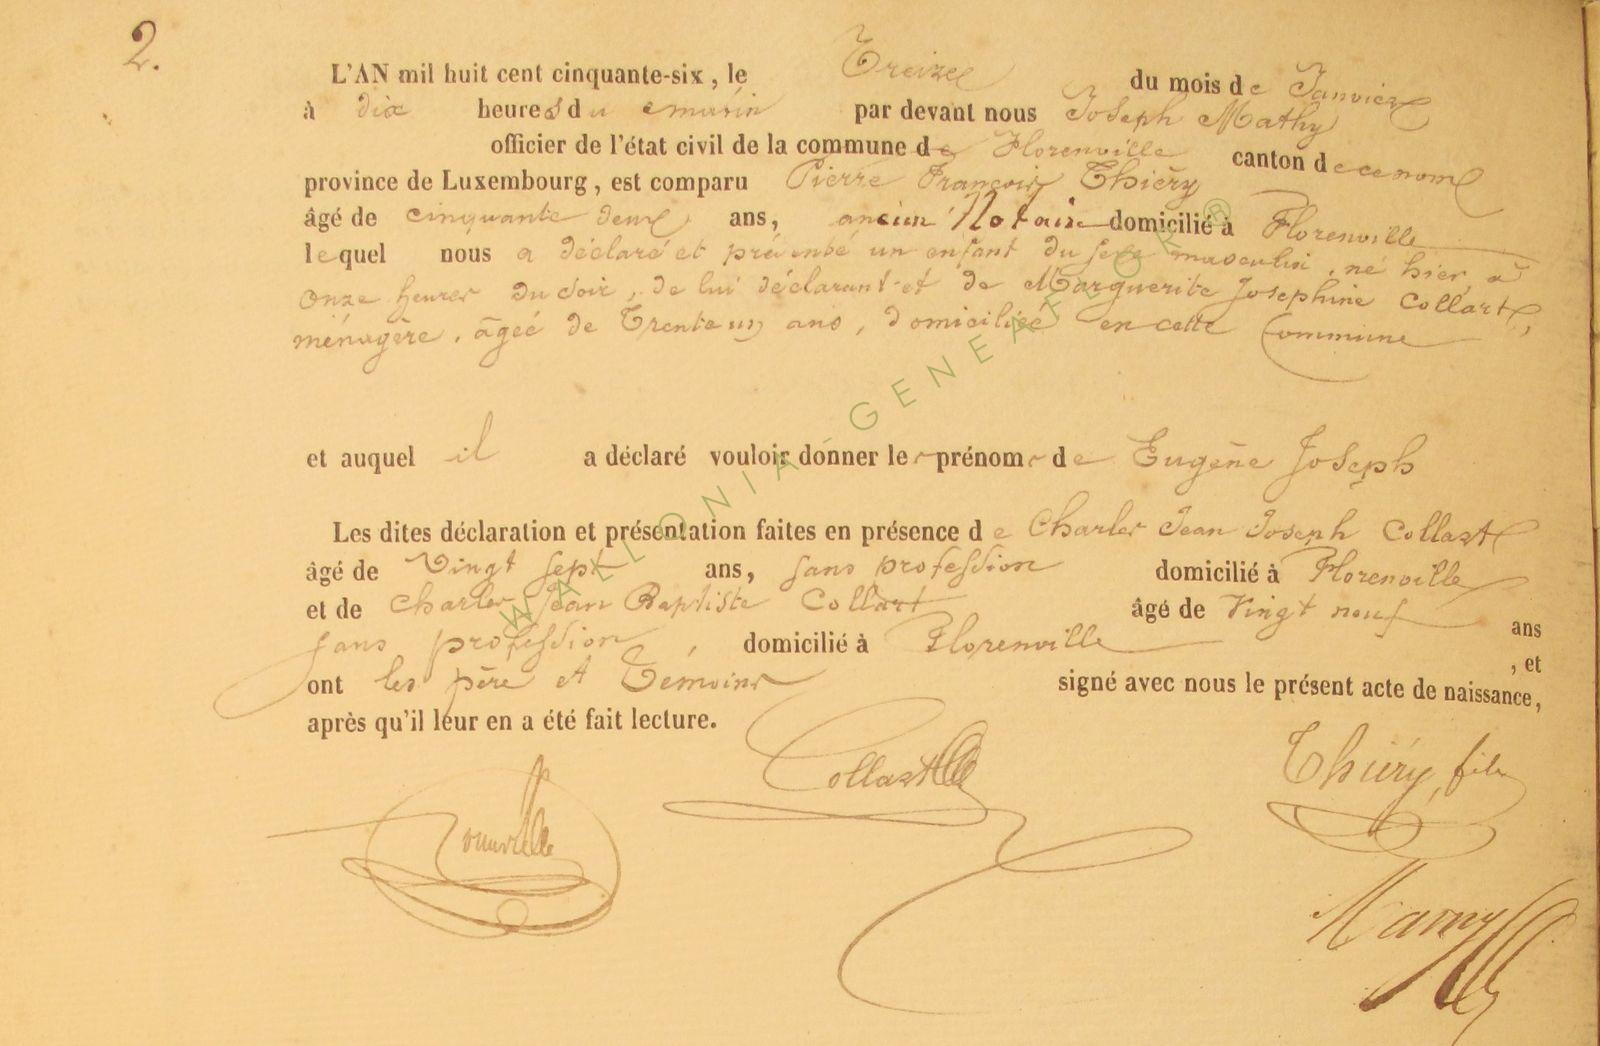 2.
L'AN mil huit cent cinquante-six, le Treize du mois de Janvier
à dix heures du matin par devant nous Joseph Mathy
officier de l'état civil de la commune de Florenville canton de ce nom
province de Luxembourg, est comparu Pierre François Thiéry
âgé de cinquante deux ans, ancien Notaire domicilié à Florenville
lequel nous a déclaré et présenté un enfant du sexe masculin, né hier, à
onze heures du soir, de lui déclarant et de Marguerite Josephine Collart,
ménagère, âgée de Trente un ans, domiciliée en cette Commune
et auquel il a déclaré vouloir donner les prénoms de Eugène Joseph
Les dites déclaration et présentation faites en présence de Charles Jean Joseph Collart
âgé de Vingt sept ans, sans profession domicilié à Florenville
et de Charles Jean Baptiste Collart âgé de Vingt neuf ans
sans profession, domicilié à Florenville, et
ont les père et Témoins signé avec nous le présent acte de naissance,
après qu'il leur en a été fait lecture.
Collart Thiéry, fils
WALLONIA-GENEAFEOR®